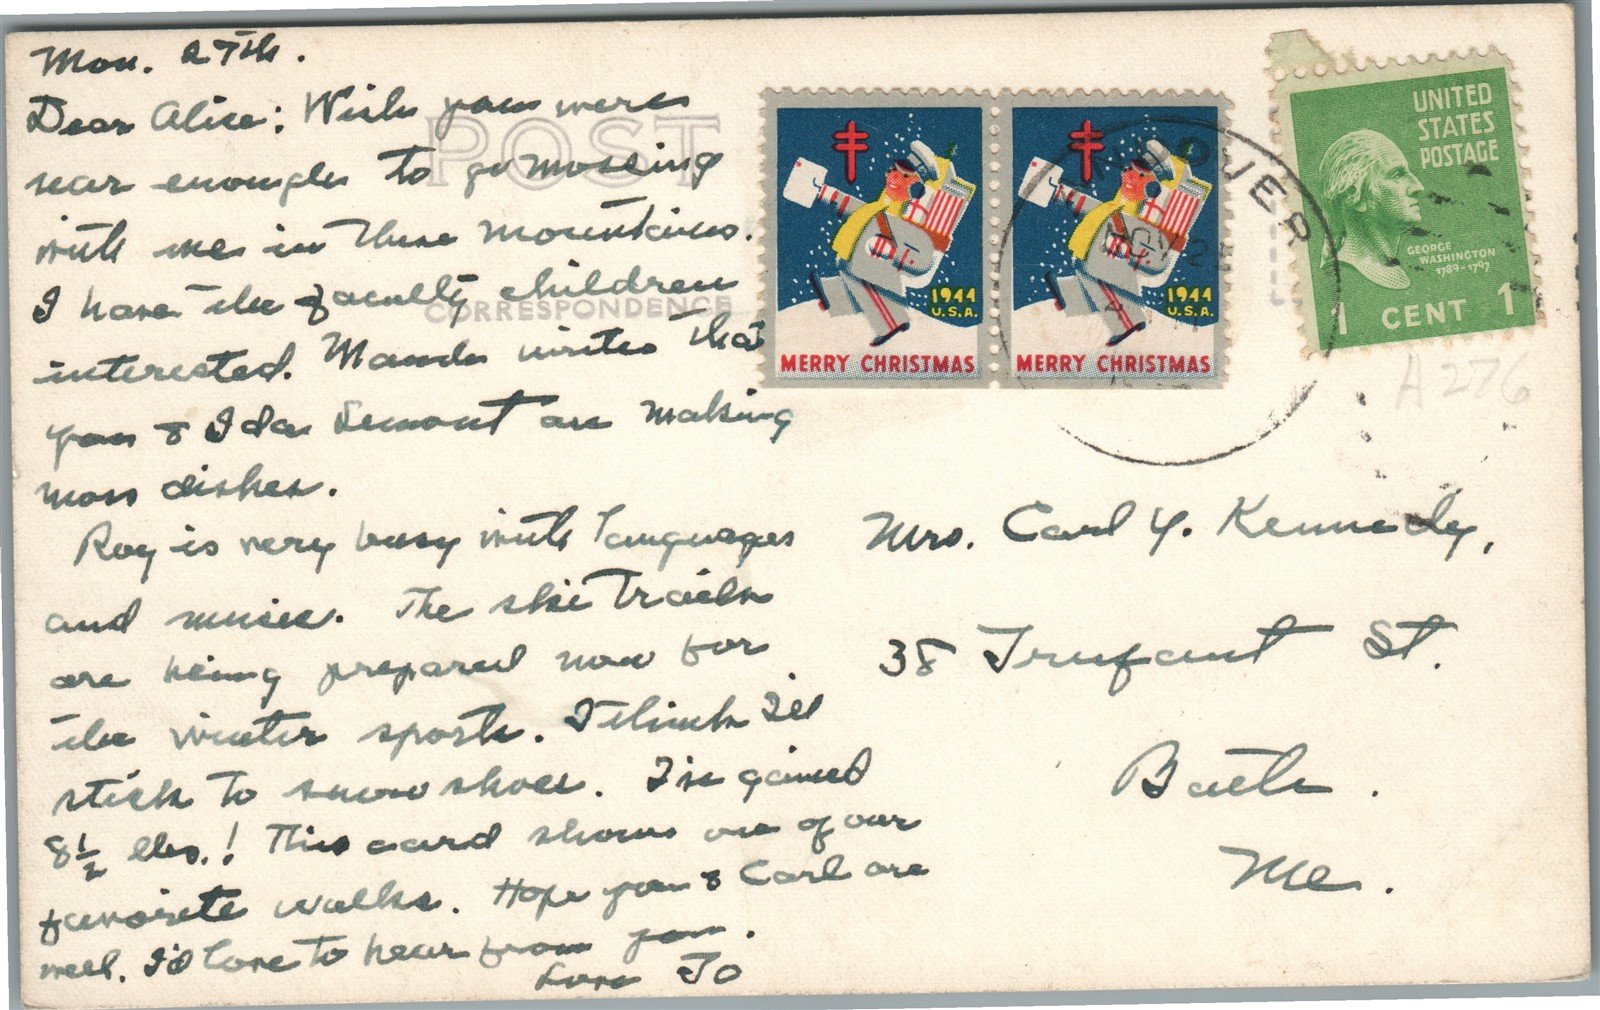 Mon. 27th.
Dear Alice: Wish you were
near enough to go mossing
with me in these mountains.
I have the faculty children
interested. Maude writes that
you & Ida Lemont are making
moss dishes.
Roy is very busy with languages
and music. The ski trails
are being prepared now for
the winter sports. I think I'll
stick to snow shoes. I've gained
8½ lbs.! This card shows one of our
favorite walks. Hope you & Carl are
well. I'd love to hear from you.
Love Jo
POST
CORRESPONDENCE
D.T.
1944
U.S.A.
MERRY CHRISTMAS
D.T.
1944
U.S.A.
MERRY CHRISTMAS
NOV 2
UNITED
STATES
POSTAGE
GEORGE
WASHINGTON
1789-1797
1 CENT 1
A276
Mrs. Carl Y. Kennedy,
38 Trufant St.
Bath.
Me.